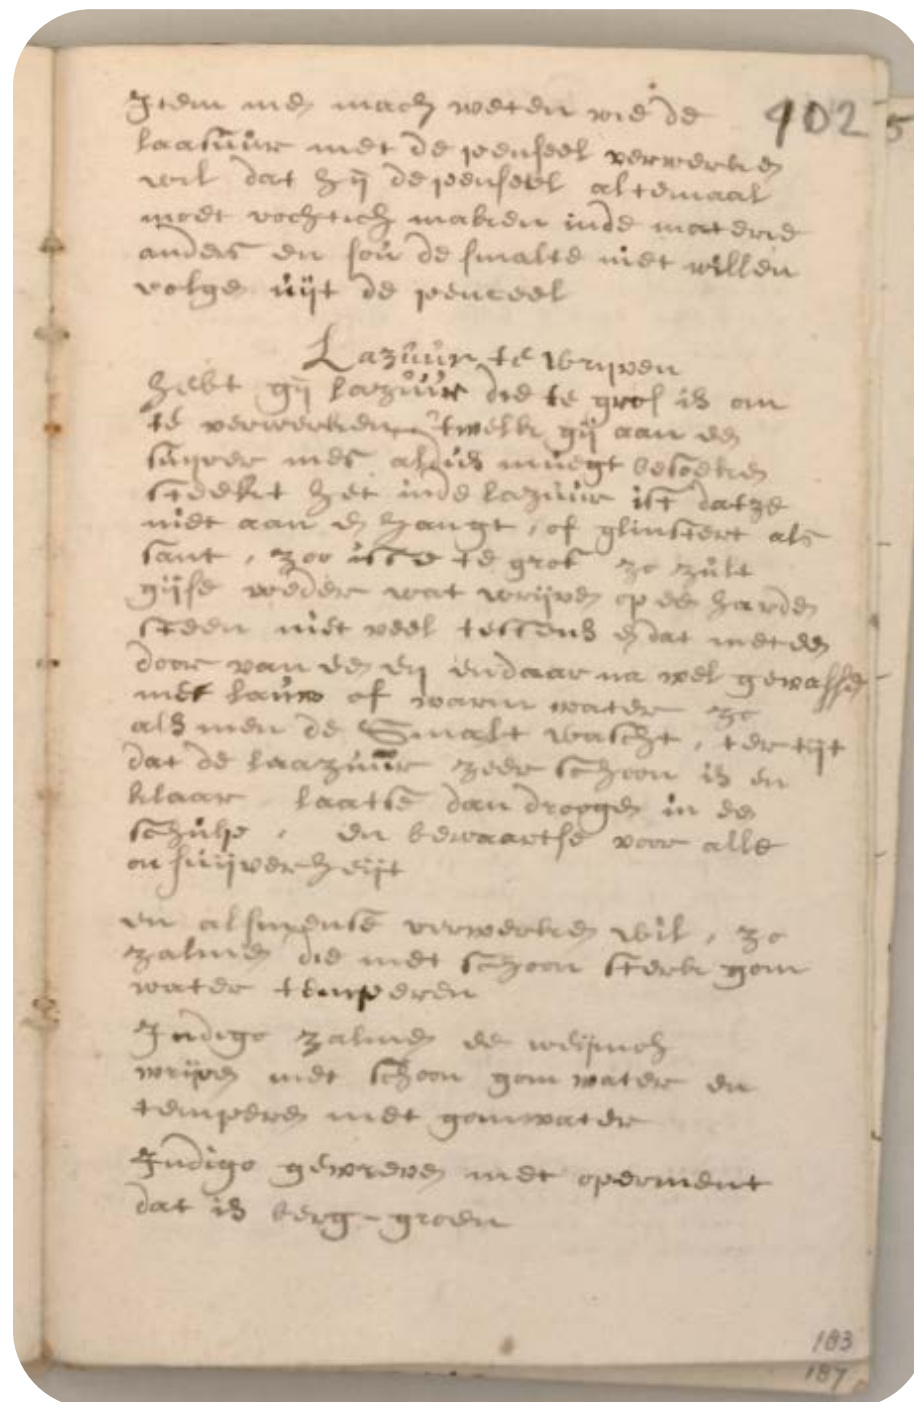 Item men mach weten wie de
402
5
laasuur met de penseel verwerken
wil dat hij de penseel altemaal
moet vochtich maken inde materie
anders en sou de smalte niet willen
volgen uijt de penceel
Lazuur te vrijven
hebt gij lazuur die te grof is om
te verwerken twelk gij aan een
suijver mes aldus muegt besoeken
steekt het inde lazuur ist datze
niet aan en hangt, of glinstert als
sant, zoo isse te grof zo zult
gijse weder wat wrijven op een harden
steen niet veel teffens en dat met een
door van een eij en daar na wel gewassen
met lauw of warm water zo
als men de Smalt wascht, ter tijt
dat de laazuur zeer schoon is en
klaar laatse dan droogen in een
schulp, en bewaartse voor alle
onsuijverheijt
en alsmense verwerken wil, zo
zalmen die met schoon sterk gom
water temperen
Indigo zalmen
wrijven met schoon gom water en
temperen met gomwater
Indigo gewreven met operment
dat is berg-groen
183
187